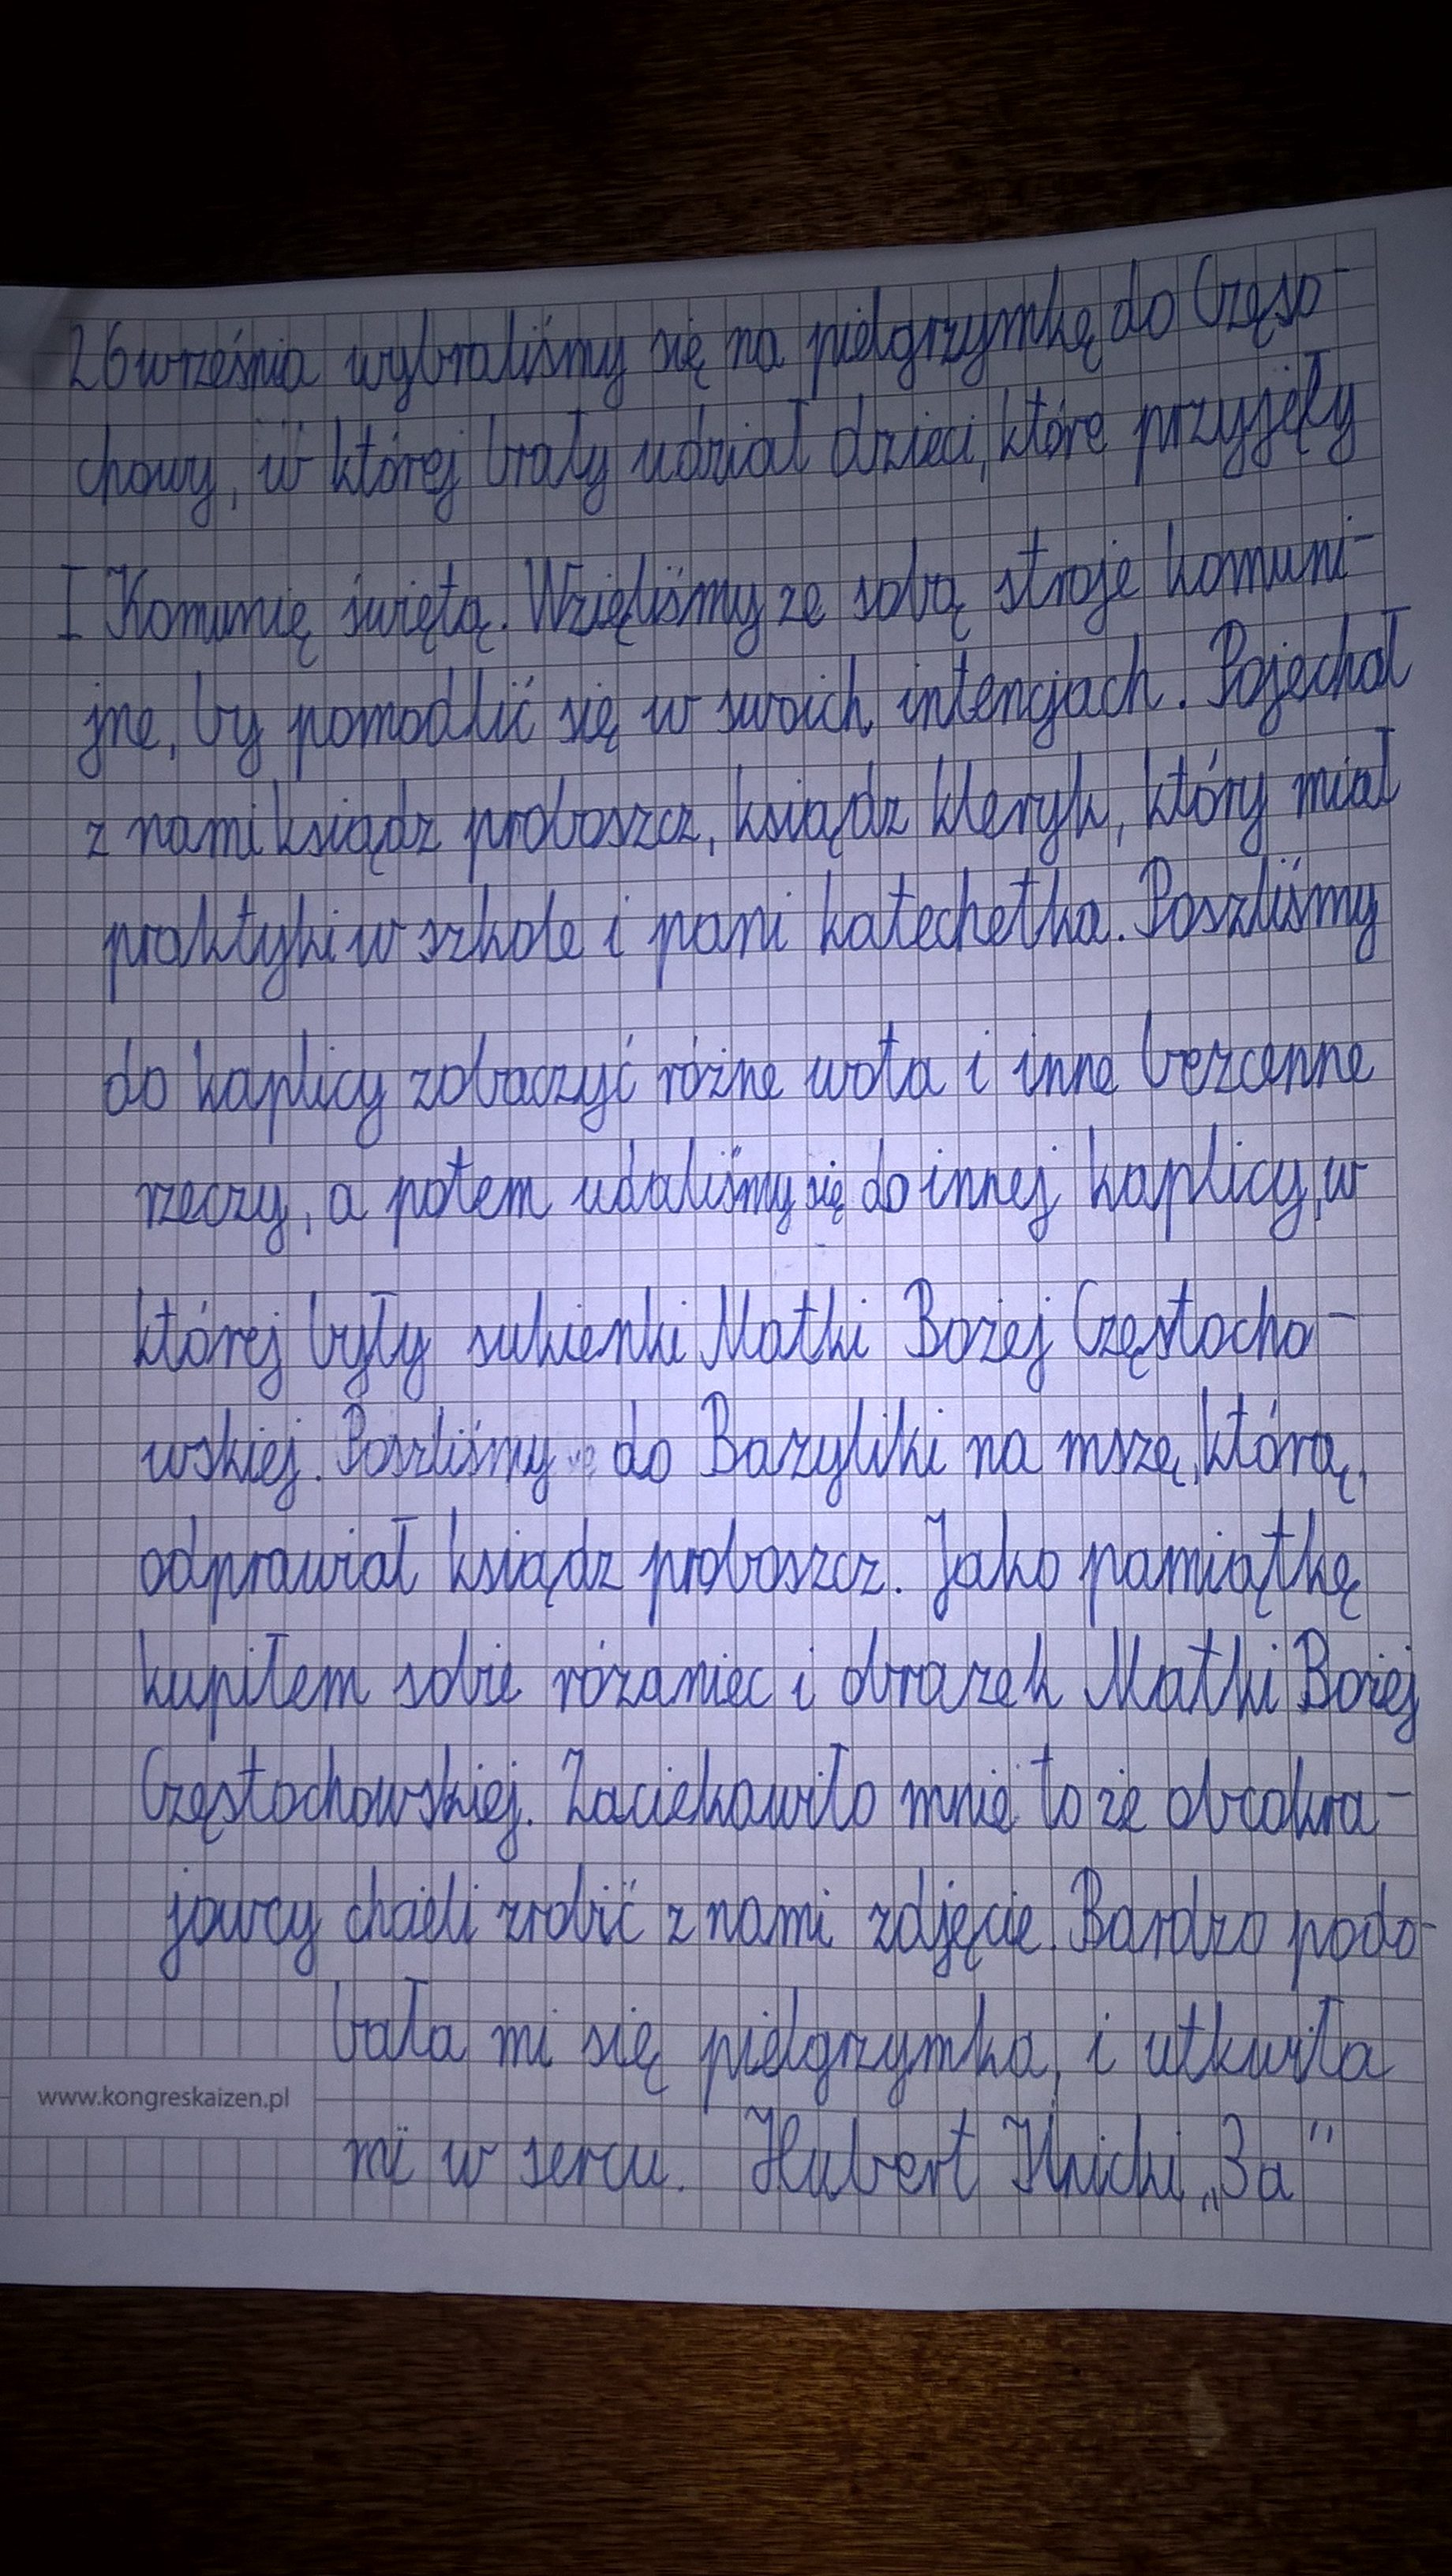 26 września wybraliśmy się na pielgrzymkę do Częso-
chowy, w której brały udział dzieci, które przyjęły
I Komunię świętą. Wzięliśmy ze sobą stroje komuni-
jne, by pomodlić się w swoich intencjach. Pojechał
z nami ksiądz proboszcz, ksiądz kleryk, który miał
praktyki w szkole i pani katechetka. Poszliśmy
do kaplicy zobaczyć różne wota i inne bezcenne
rzeczy, a potem udaliśmy się do innej kaplicy, w
której były sukienki Matki Bożej Częstocho-
wskiej. Poszliśmy do Bazyliki na mszę, którą,
odprawiał ksiądz proboszcz. Jako pamiątkę
kupiłem sobie różaniec i obrazek Matki Bożej
Częstochowskiej. Zaciekawiło mnie to że obcokra-
jowcy chcieli zrobić z nami zdjęcie. Bardzo podo-
bała mi się pielgrzymka, i utkwiła
www.kongreskaizen.pl
mi w sercu. Hubert „3a"